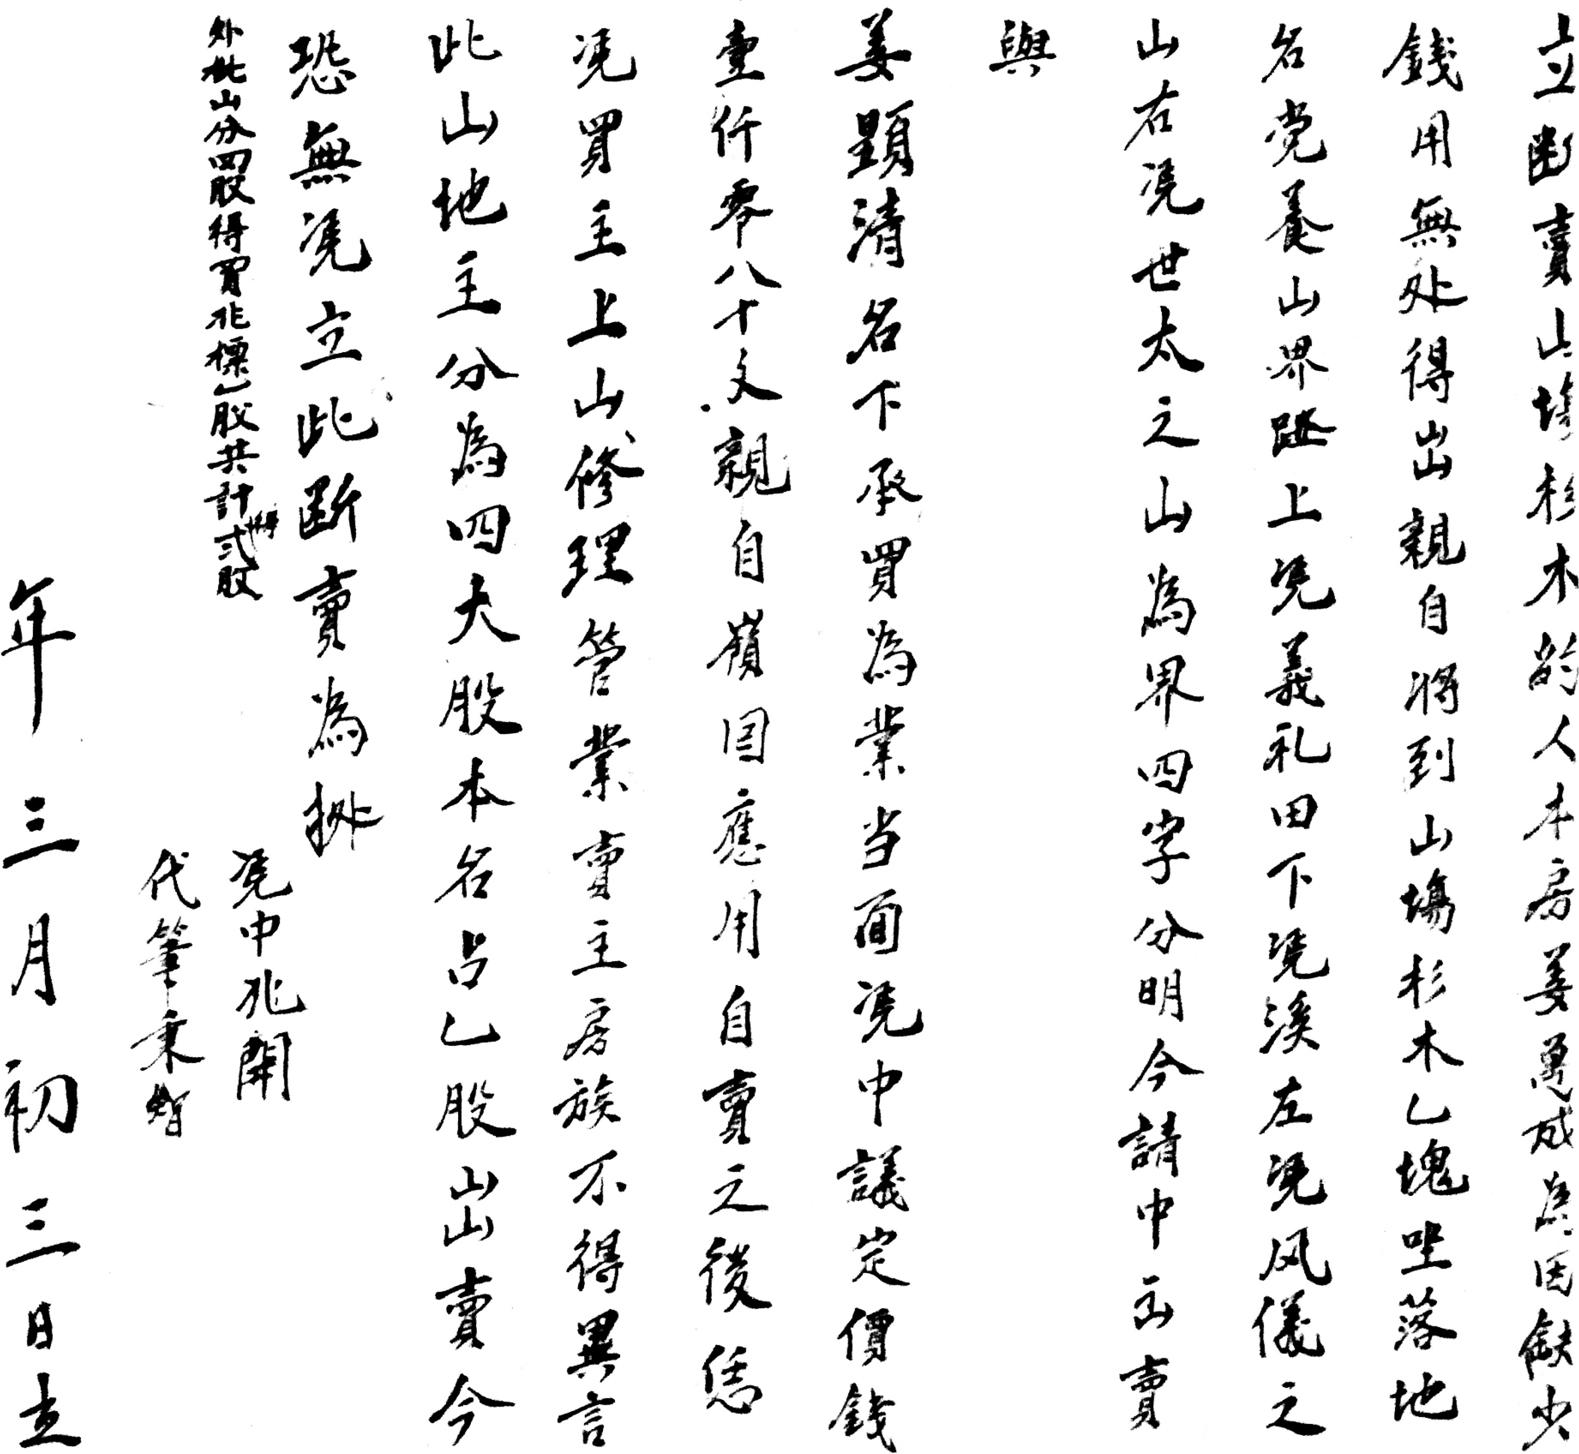 立断賣山塲杉木的人本房姜勇成為因缺少
錢用無处得出親自将到山塲杉木乙塊坐落地
名党養山界趾上凴義礼田下凴溪左凴风儀之
山右凴世太之山為界四字分明今請中出賣
與
姜顕清名下承買為業当面凴中議定價錢
壹仟零八十文親自領囘應用自賣之後恁
凴買主上山修理管業賣主房族不得異言
此山地主分為四大股本名占乙股出山賣今
恐無凴立此断賣為拠
外批山分四股得買兆標乙股共計弍股
凴中兆開
代筆秉智
年三月初三日立